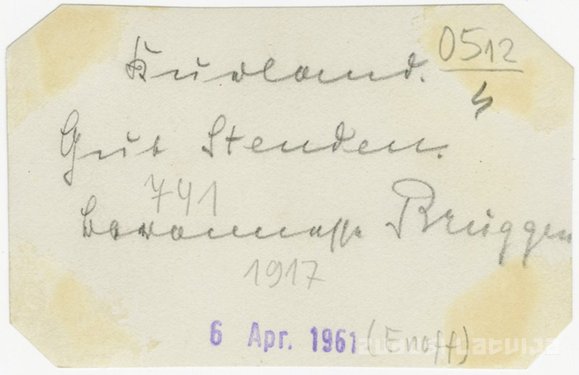 Kurland. 0512
4
Gut Stenden.
741
Baronnesse Brüggen
1917
6 Apr. 1961 (Enoff)